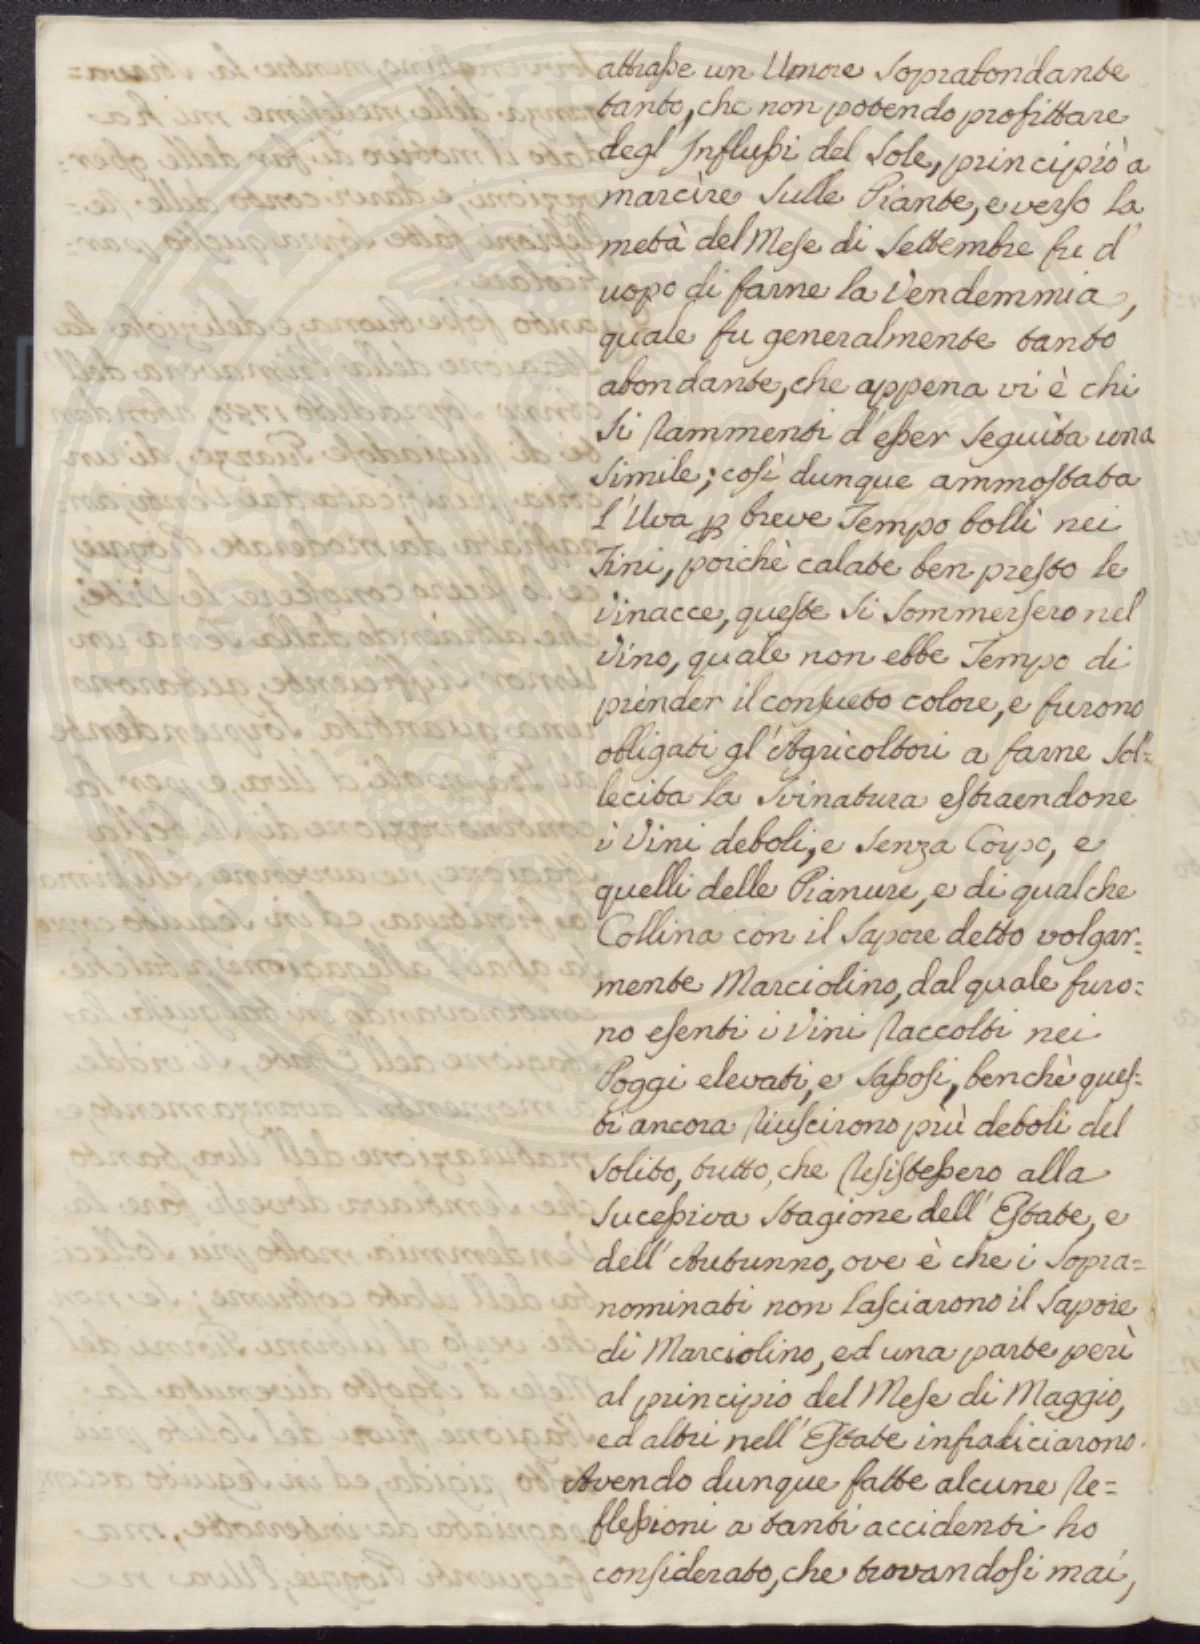 attrasse un Umore soprabondante
tanto, che non potendo profittare
degl'Influssi del Sole, principiò a
marcìre sulle Piante, e verso la
metà del Mese di Settembre fu d'
uopo di farne la Vendemmia,
quale fu generalmente tanto
abondante, che appena vi è chi
si rammenti d'esser seguìta una
simile; così dunque ammostata
l'Uva p breve Tempo bollì nei
Tini, poichè calate ben presto le
Vinacce, queste si sommersero nel
Vino, quale non ebbe Tempo di
prinder il consueto colore, e furono
obligati gl'Agricoltori a farne sol=
lecita la Svinatura estraendone
i Vini deboli, e senza Corpo, e
quelli delle Pianure, e di qualche
Collina con il sapore detto volgar=
mente Marciolino, dal quale furo=
no esenti i Vini raccolti nei
Poggi elevati, e sassosi, benchè ques=
ti ancora riuscirono più deboli del
solito, tutto, che resistessero alla
sucessiva Stagione dell'Estate, e
dell'Autunno, ove è che i sopra=
nominati non lasciarono il sapore
di Marciolino, ed una parte perì
al principio del Mese di Maggio,
ed altri nell'Estate infradiciarono.
Avendo dunque fatte alcune re=
flessioni a tanti accidenti ho
considerato, che trovandosi mai,